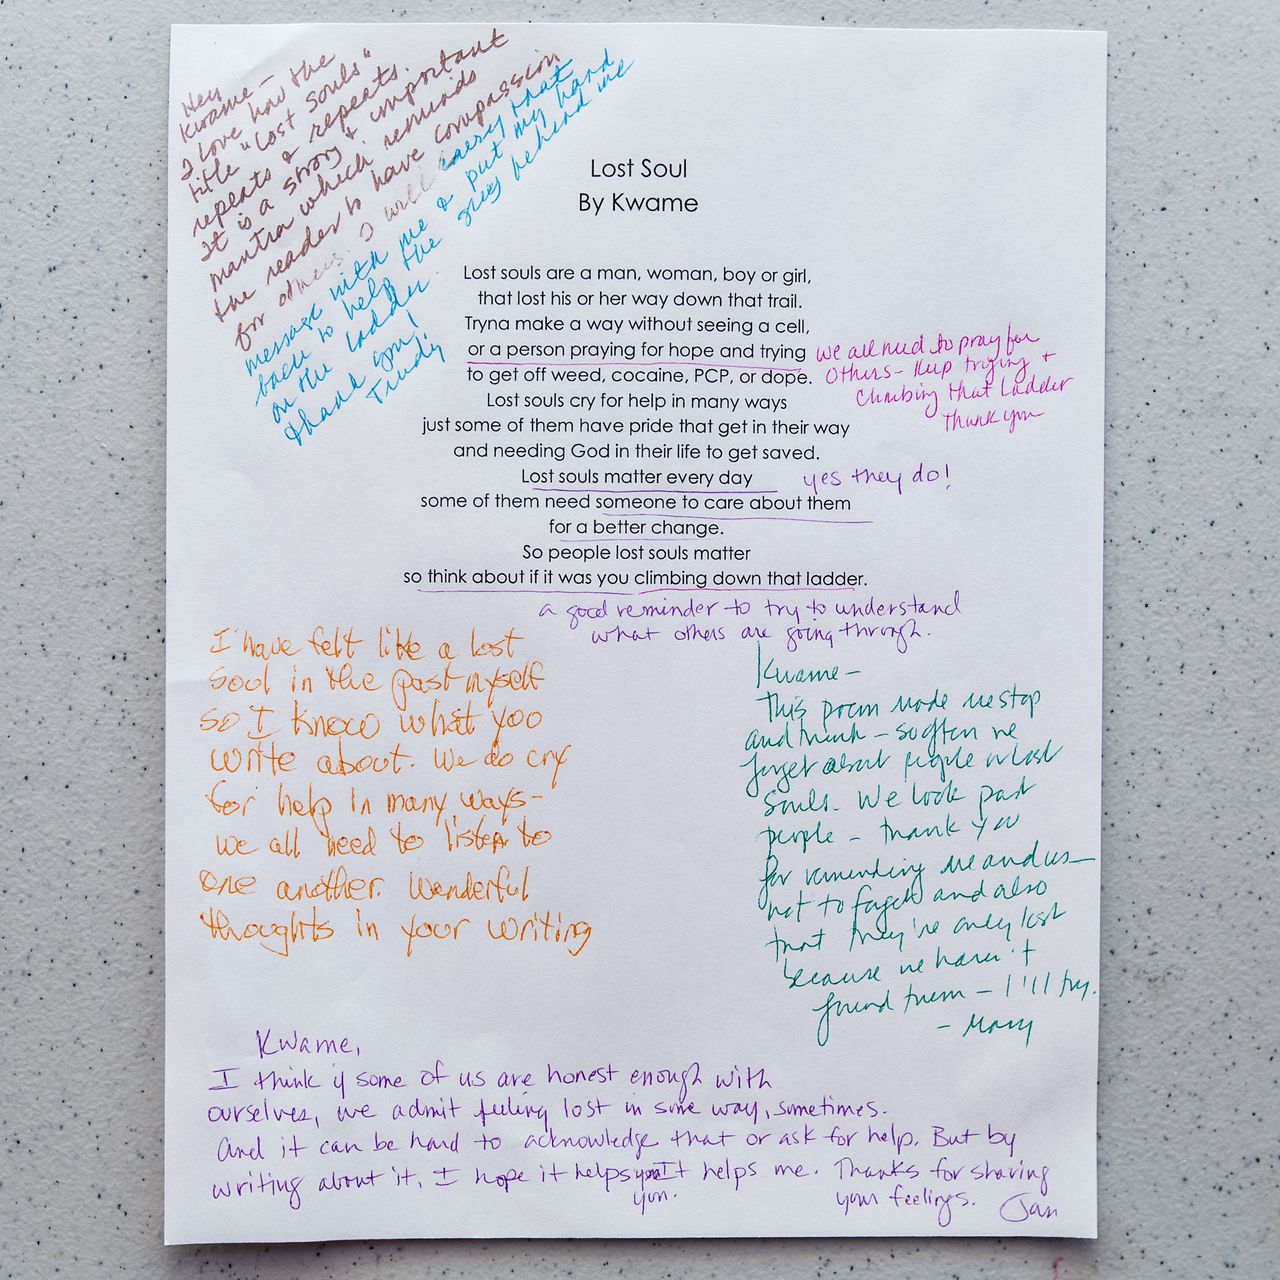 Hey
Kwame – I love how the
title "Lost Souls"
repeats & repeats.
It is a strong & important
mantra which reminds
the reader to have compassion
for others. I will carry that
message with me & put my hand
back to help the guy behind me
on the ladder.
thank you!
Trudy
Lost Soul
By Kwame
Lost souls are a man, woman, boy or girl,
that lost his or her way down that trail.
Tryna make a way without seeing a cell,
or a person praying for hope and trying
to get off weed, cocaine, PCP, or dope.
Lost souls cry for help in many ways
just some of them have pride that get in their way
and needing God in their life to get saved.
Lost souls matter every day
some of them need someone to care about them
for a better change.
So people lost souls matter
so think about if it was you climbing down that ladder.
we all need to pray for
others – keep trying +
climbing that ladder
thank you
yes they do!
a good reminder to try to understand
what others are going through.
I have felt like a lost
soul in the past myself
so I know what you
write about. We do cry
for help in many ways –
we all need to listen to
one another. Wonderful
thoughts in your writing
Kwame –
This poem made me stop
and think – so often we
forget about people or lost
souls. We look past
people – thank you
for reminding me and us –
not to forget and also
that they're only lost
because we haven't
found them – I'll try.
– Mary
Kwame,
I think if some of us are honest enough with
ourselves, we admit feeling lost in some way, sometimes.
And it can be hard to acknowledge that or ask for help. But by
writing about it, I hope it helps you. It helps me. Thanks for sharing
your feelings. Jan